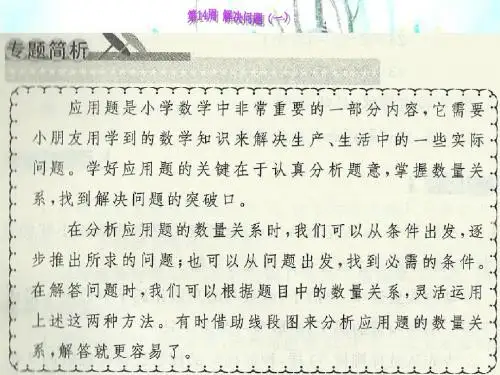 第14周 解决问题（一）
专题简析
应用题是小学数学中非常重要的一部分内容,它需要
小朋友用学到的数学知识来解决生产、生活中的一些实际
问题。学好应用题的关键在于认真分析题意,掌握数量关
系,找到解决问题的突破口。
在分析应用题的数量关系时,我们可以从条件出发,逐
步推出所求的问题;也可以从问题出发,找到必需的条件。
在解答问题时,我们可以根据题目中的数量关系,灵活运用
上述这两种方法。有时借助线段图来分析应用题的数量关
系,解答就更容易了。